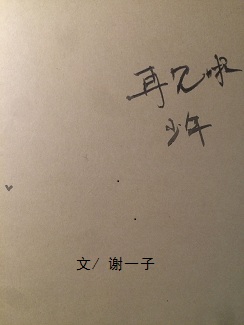 再见呀
少年
文/ 谢一子